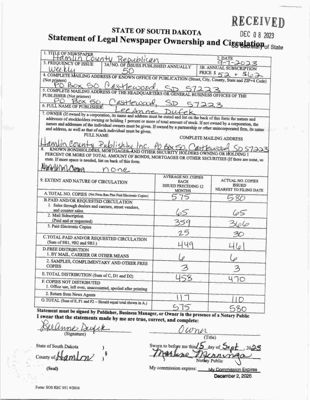 RECEIVED
DEC 08 2023
STATE OF SOUTH DAKOTA
Statement of Legal Newspaper Ownership and Circulation
Secretary of State
1. TITLE OF NEWSPAPER
Hamlin County Republican
2. DATE
11-7-2023
3. FREQUENCY OF ISSUE
Weekly
3A. NO. OF ISSUES PUBLISHED ANNUALLY
50
3B. ANNUAL SUBSCRIPTION
PRICE $
4. COMPLETE MAILING ADDRESS OF KNOWN OFFICE OF PUBLICATION (Street, City, County, State and ZIP+4 Code)
(Not printers)
PO Box 50 Castlewood, SD 57223
5. COMPLETE MAILING ADDRESS OF THE HEADQUARTERS OR GENERAL BUSINESS OFFICES OF THE
PUBLISHER (Not printer)
PO Box 50 Castlewood, SD 57223
6. FULL NAME OF PUBLISHER
LeeAnne Dufek
7. OWNER (If owned by a corporation, its name and address must be stated and list on the back of this form the names and
addresses of stockholders owning or holding 1 percent or more of total amount of stock. If not owned by a corporation, the
names and addresses of the individual owners must be given. If owned by a partnership or other unincorporated firm, its name
and address, as well as that of each individual must be given.
FULL NAME
COMPLETE MAILING ADDRESS
Hamlin County Publishing Inc. PO Box 50 Castlewood SD 57223
8. KNOWN BONDHOLDERS, MORTGAGEES, AND OTHER SECURITY HOLDERS OWNING OR HOLDING 1
PERCENT OR MORE OF TOTAL AMOUNT OF BONDS, MORTGAGES OR OTHER SECURITIES (If there are none, so
state. If more space is needed, list on back of this form.
none
9. EXTENT AND NATURE OF CIRCULATION
AVERAGE NO. COPIES
EACH
ISSUED PRECEDING 12
MONTHS
ACTUAL NO. COPIES
ISSUED
NEAREST TO FILING DATE
A. TOTAL NO. COPIES
575
580
B. PAID AND/OR REQUESTED CIRCULATION
1. Sales through dealers and carriers, street vendors,
and counter sales.
65
65
2. Mail Subscription
(Paid and or requested)
359
366
3. Paid Electronic Copies
25
30
C. TOTAL PAID AND/OR REQUESTED CIRCULATION
(Sum of 9B1, 9B2 and 9B3)
449
461
D. FREE DISTRIBUTION
1. BY MAIL, CARRIER OR OTHER MEANS
6
6
2. SAMPLES, COMPLIMENTARY AND OTHER FREE
COPIES
3
3
E. TOTAL DISTRIBUTION (Sum of C, D1 and D2)
458
470
F. COPIES NOT DISTRIBUTED
1. Office use, left over, unaccounted, spoiled after printing
2. Return from News Agents
117
110
G. TOTAL (Sum of E, F1 and F2 - Should equal total shown in A.)
575
580
Statement must be signed by Publisher, Business Manager, or Owner in the presence of a Notary Public
I swear that the statements made by me are true, correct, and complete:
LeeAnne Dufek
(Signature)
Owner
(Title)
State of South Dakota
County of Hamlin
Sworn to before me this 15 day of Sept 2023
Notary Public
(Seal)
My commission expires:
My Commission Expires
December 2, 2026